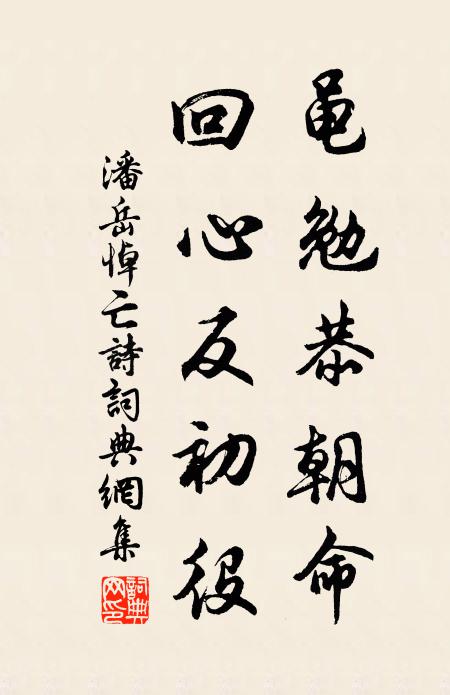 黽勉恭朝命
回心反初役
潘岳悼亡詩詞典網集
詞典网印